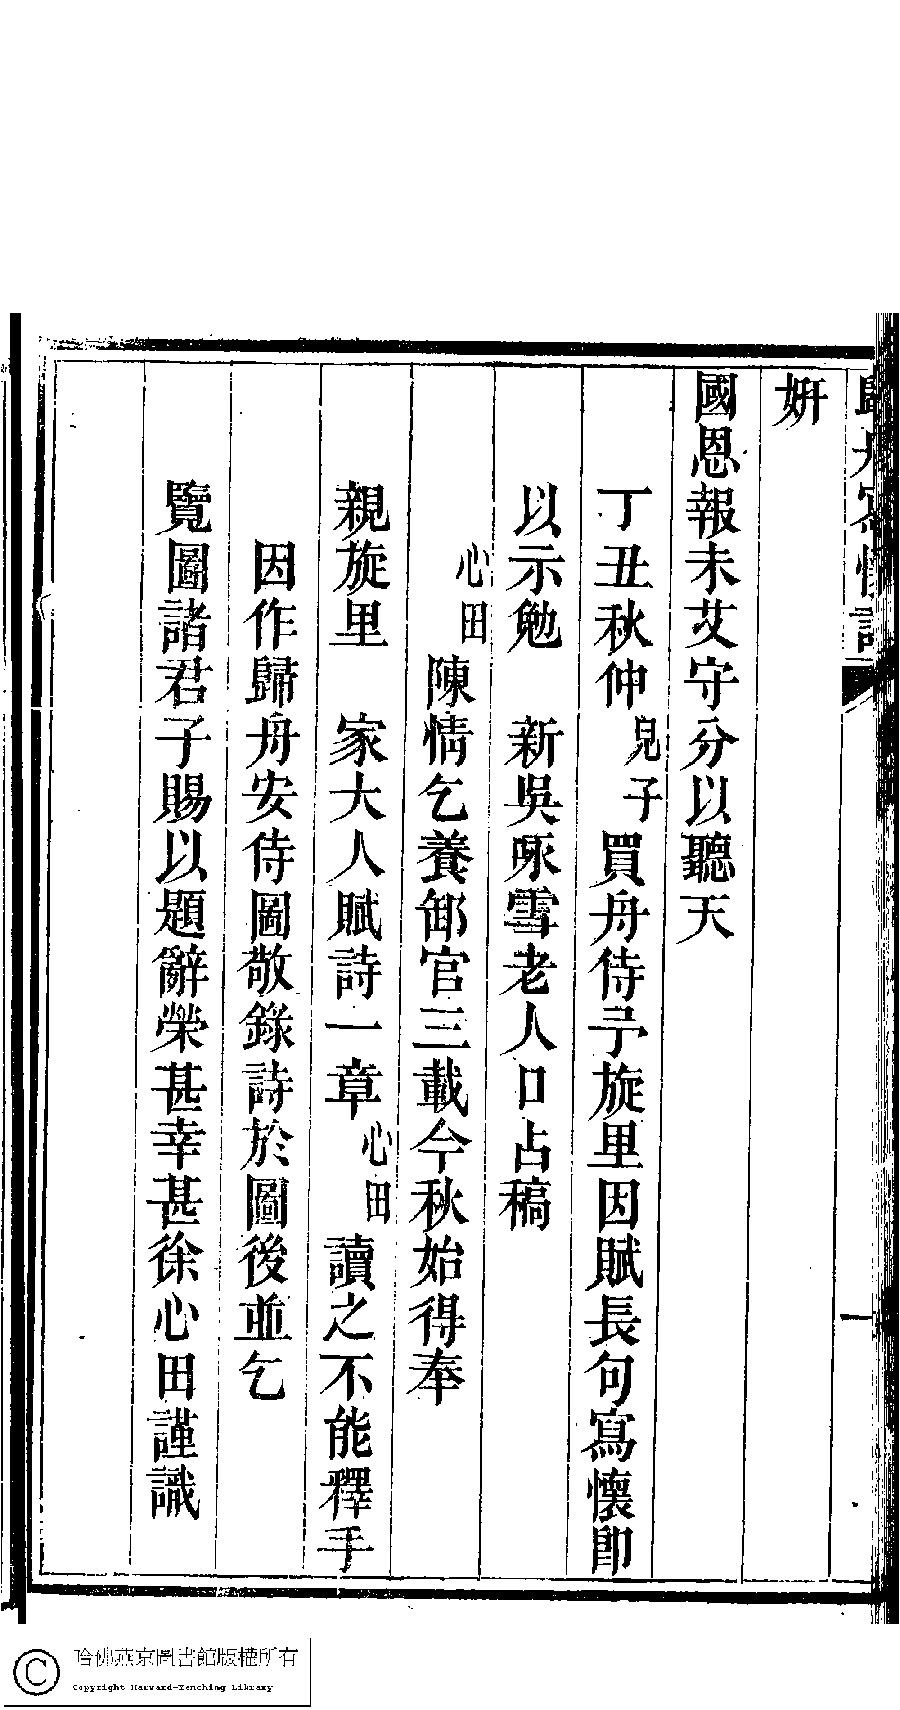 歸舟寫懷詩
一
妍
國恩報未艾守分以聽天
丁丑秋仲兒子買舟侍予旋里因賦長句寫懷即
以示勉　新吳啄雪老人口占稿
心田陳情乞養卸官三載今秋始得奉
親旋里　家大人賦詩一章心田讀之不能釋手
因作歸舟安侍圖敬錄詩於圖後並乞
覽圖諸君子賜以題辭榮甚幸甚徐心田謹識
哈佛燕京圖書館版權所有
Copyright Harvard-Yenching Library